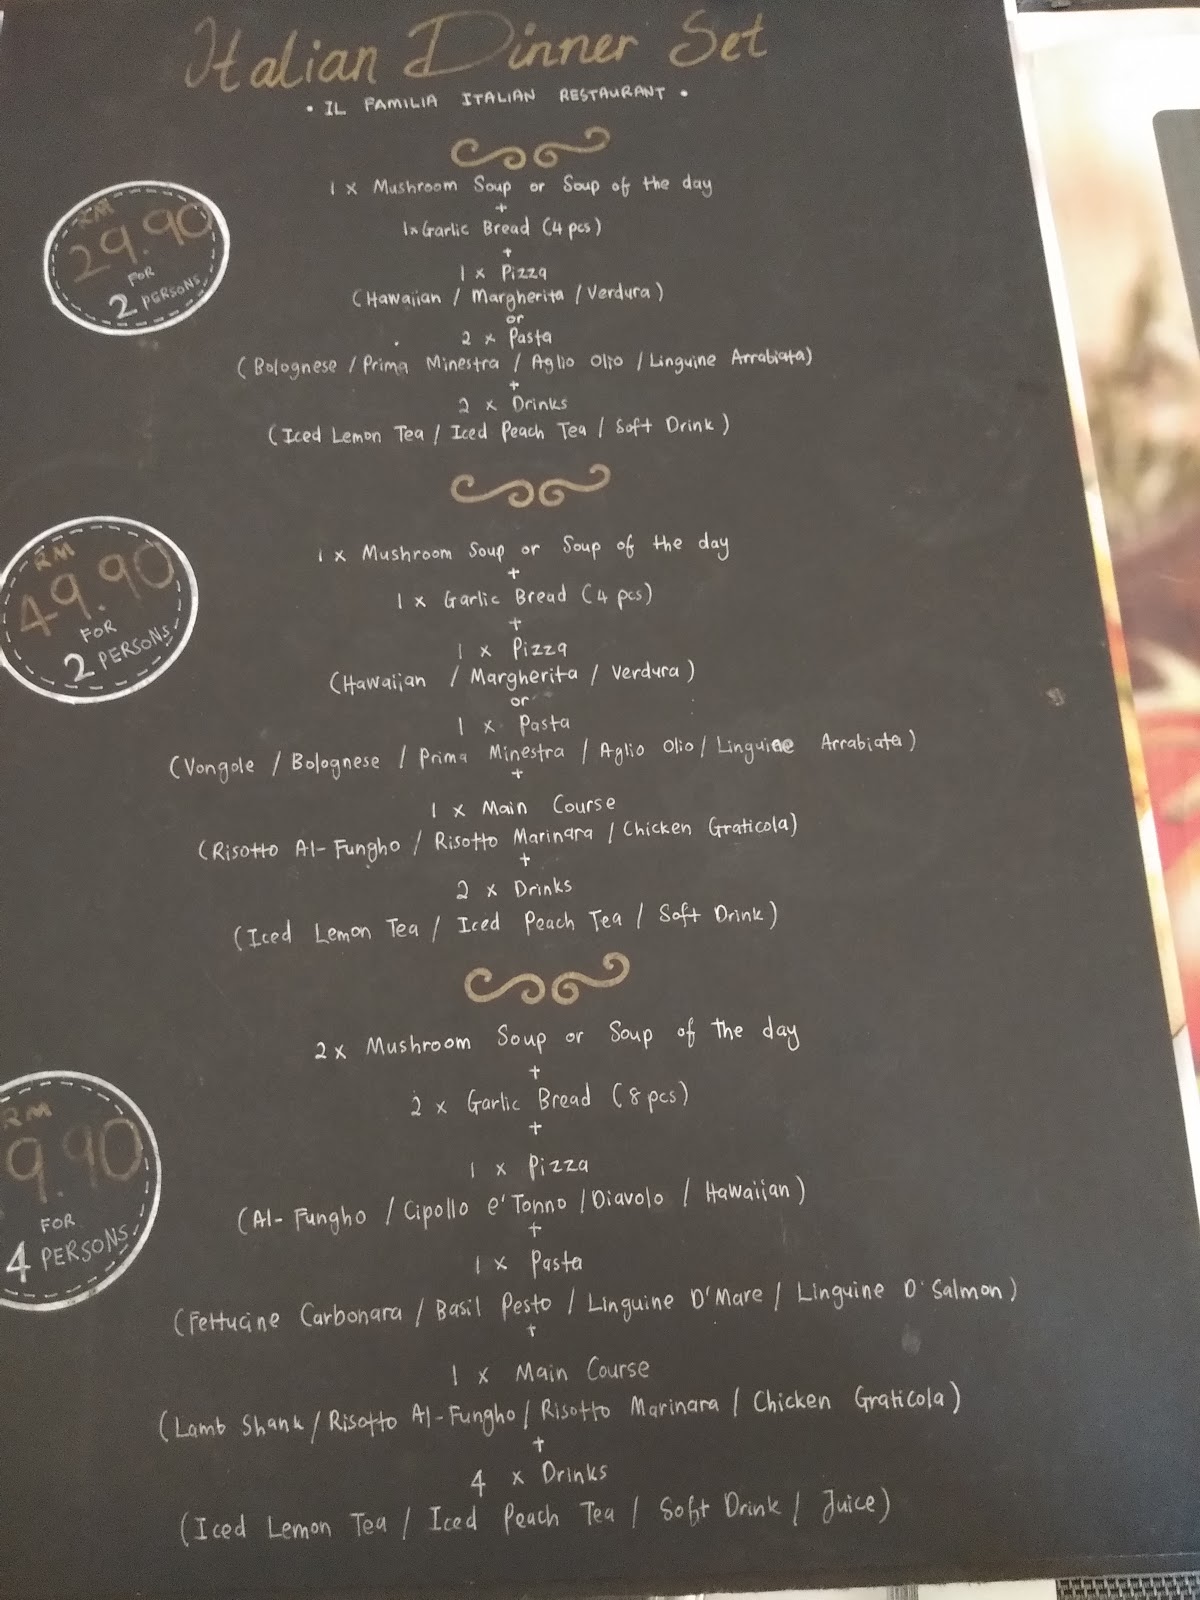 Italian Dinner Set
• IL FAMILIA ITALIAN RESTAURANT •
RM
29.90
FOR
2 PERSONS
1 x Mushroom Soup or Soup of the day
+
1x Garlic Bread (4 pcs)
+
1 x Pizza
(Hawaiian / Margherita / Verdura)
or
2 x Pasta
(Bolognese / Prima Minestra / Aglio Olio / Linguine Arrabiata)
+
2 x Drinks
(Iced Lemon Tea / Iced Peach Tea / Soft Drink)
RM
49.90
FOR
2 PERSONS
1 x Mushroom Soup or Soup of the day
+
1 x Garlic Bread (4 pcs)
+
1 x Pizza
(Hawaiian / Margherita / Verdura)
or
1 x Pasta
(Vongole / Bolognese / Prima Minestra / Aglio Olio / Linguine Arrabiata)
+
1 x Main Course
(Risotto Al-Fungho / Risotto Marinara / Chicken Graticola)
+
2 x Drinks
(Iced Lemon Tea / Iced Peach Tea / Soft Drink)
RM
9.90
FOR
4 PERSONS
2 x Mushroom Soup or Soup of the day
+
2 x Garlic Bread (8 pcs)
+
1 x Pizza
(Al-Fungho / Cipollo e' Tonno / Diavolo / Hawaiian)
+
1 x Pasta
(Fettucine Carbonara / Basil Pesto / Linguine D'Mare / Linguine D'Salmon)
+
1 x Main Course
(Lamb Shank / Risotto Al-Fungho / Risotto Marinara / Chicken Graticola)
+
4 x Drinks
(Iced Lemon Tea / Iced Peach Tea / Soft Drink / Juice)